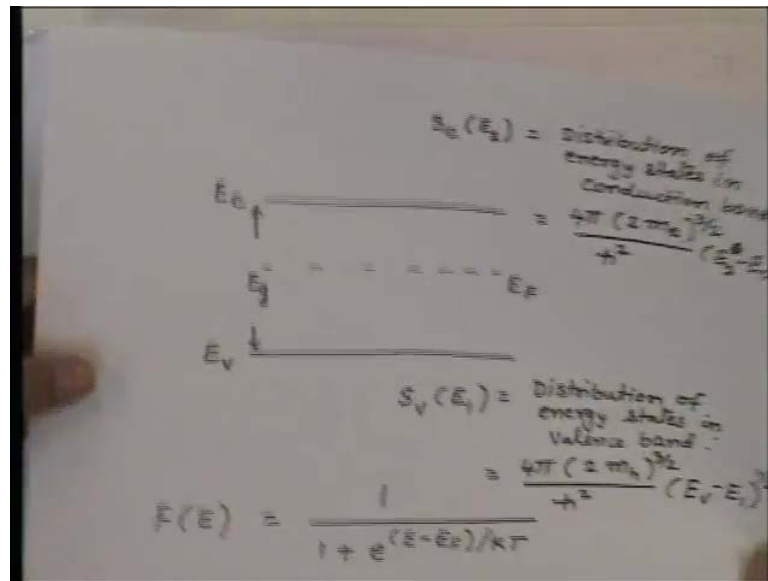 S_c (E_2) = Distribution of
energy states in
conduction band
= 4π (2 m_e)^3/2 / h^2
E_c
E_g
E_F
E_v
S_v (E_1) = Distribution of
energy states in
valence band.
= 4π (2 m_h)^3/2 / h^2 (E_v - E_1)
F(E) = 1 / 1 + e^(E-E_F)/kT